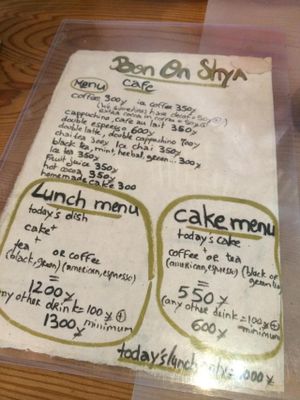 Bon On Shya
Menu Cafe
coffee 300y ice coffee 350y
cappuchino, cafe au lait 350y
double espresso 600y
double latte, double cappuchino 700y
chai tea 300y Ice chai 350y
black tea, mint, herbal, green... 300y
Ice tea 350y
fruit juice 350y
hot cocoa 350y
homemade cake 300
Lunch menu
today's dish
+
cake
+
tea or coffee
(black, green) (american, espresso)
=
1200y
any other drink = 100y +
1300y minimum
cake menu
today's cake
+
coffee or tea
(american, espresso) (black or green tea)
=
550y
(any other drink = 100y +)
600y minimum
today's lunch only = 1000y